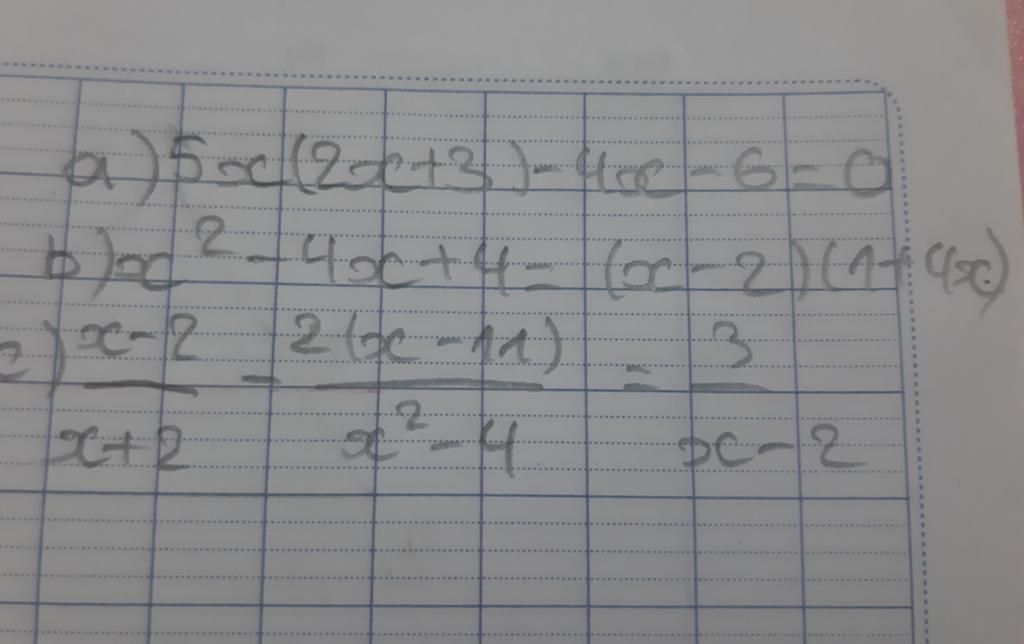 a) 5x(2x+3)-4x-6=0
b) x²-4x+4=(x-2)(1+4x)
c) \frac{x-2}{x+2} - \frac{2(x-11)}{x²-4} = \frac{3}{x-2}